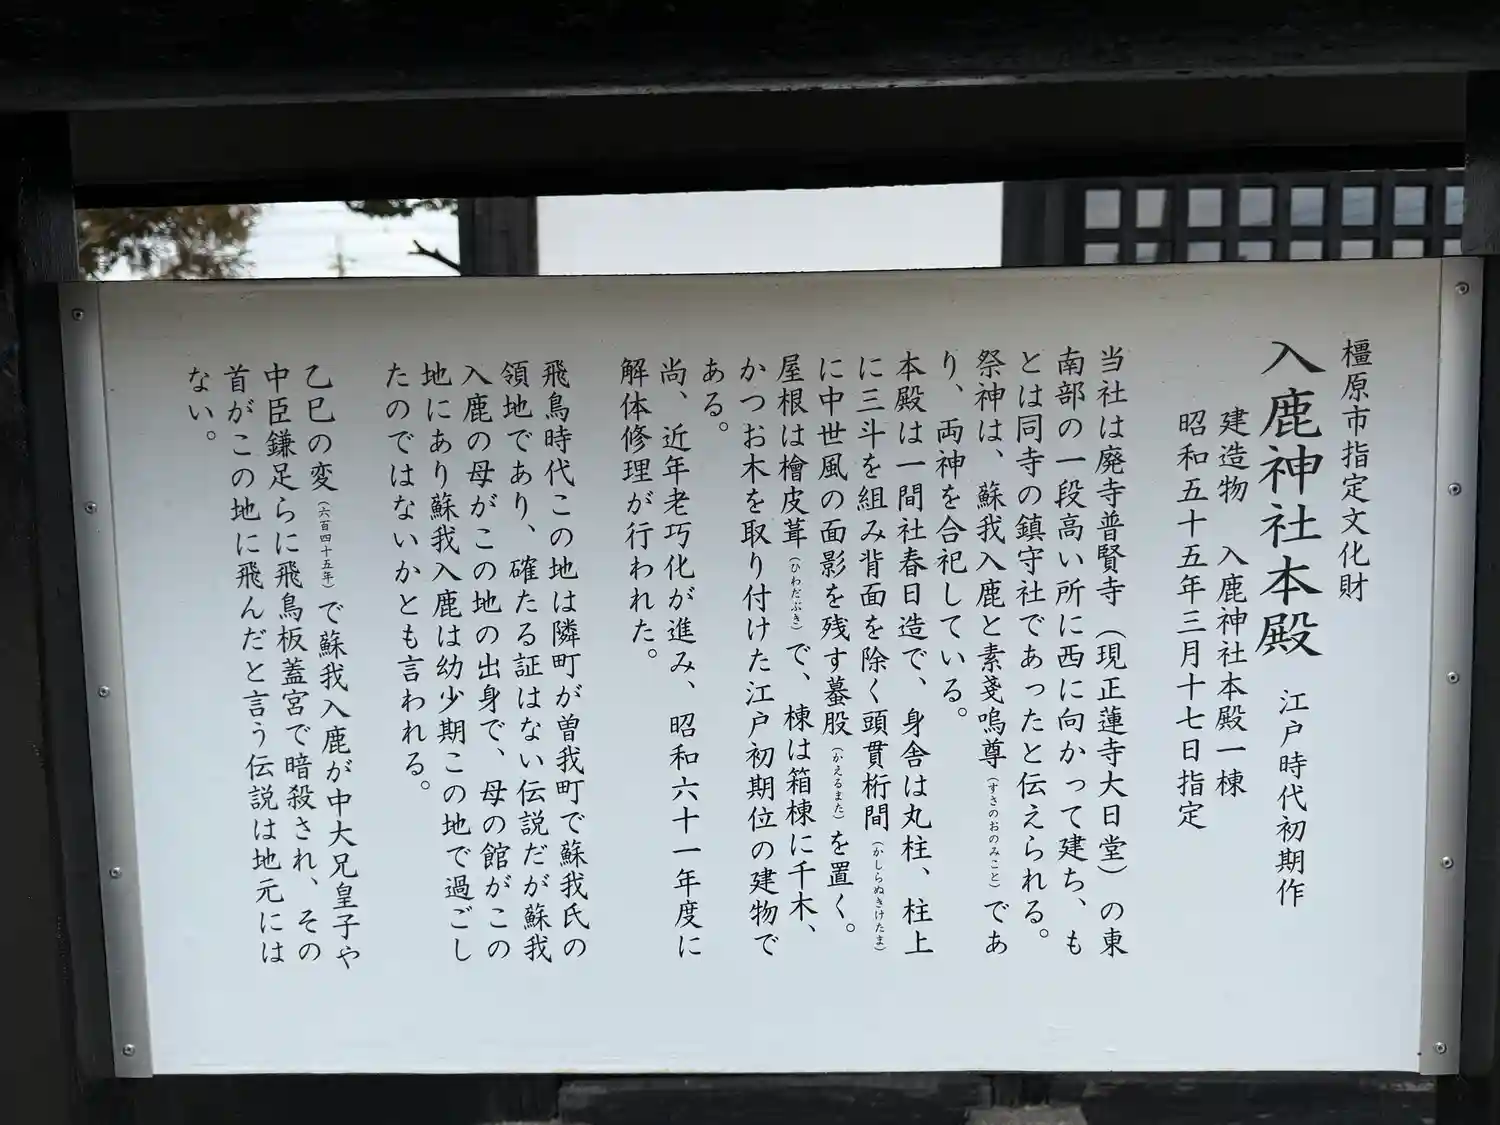 橿原市指定文化財
入鹿神社本殿 江戸時代初期作
建造物 入鹿神社本殿一棟
昭和五十五年三月十七日指定
当社は廃寺普賢寺（現正蓮寺大日堂）の東
南部の一段高い所に西に向かって建ち、も
とは同寺の鎮守社であったと伝えられる。
祭神は、蘇我入鹿と素戔嗚尊（すさのおのみこと）であ
り、両神を合祀している。
本殿は一間社春日造で、身舎は丸柱、柱上
に三斗を組み背面を除く頭貫桁間（かしらぬきけたま）
に中世風の面影を残す蟇股（かえるまた）を置く。
屋根は檜皮葺（ひわだぶき）で、棟は箱棟に千木、
かつお木を取り付けた江戸初期位の建物で
ある。
尚、近年老巧化が進み、昭和六十一年度に
解体修理が行われた。
飛鳥時代この地は隣町が曽我町で蘇我氏の
領地であり、確たる証はない伝説だが蘇我
入鹿の母がこの地の出身で、母の館がこの
地にあり蘇我入鹿は幼少期この地で過ごし
たのではないかとも言われる。
乙巳の変（六百四十五年）で蘇我入鹿が中大兄皇子や
中臣鎌足らに飛鳥板蓋宮で暗殺され、その
首がこの地に飛んだと言う伝説は地元には
ない。